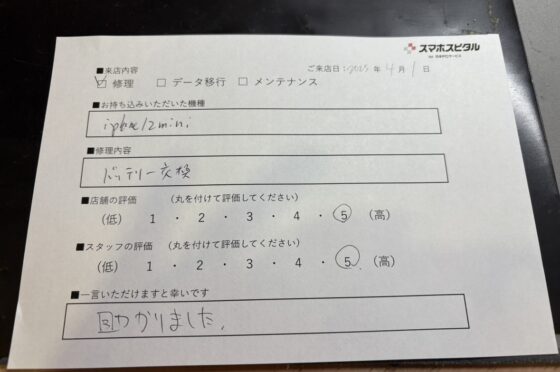 スマホスピタル
■来店内容
ご来店日：2025 年 4 月 1 日
☑ 修理 □ データ移行 □ メンテナンス
■お持ち込みいただいた機種
iphone12mini
■修理内容
バッテリー交換
■店舗の評価 （丸を付けて評価してください）
（低） 1 ・ 2 ・ 3 ・ 4 ・ 5 （高）
■スタッフの評価 （丸を付けて評価してください）
（低） 1 ・ 2 ・ 3 ・ 4 ・ 5 （高）
■一言いただけますと幸いです
助かりました。